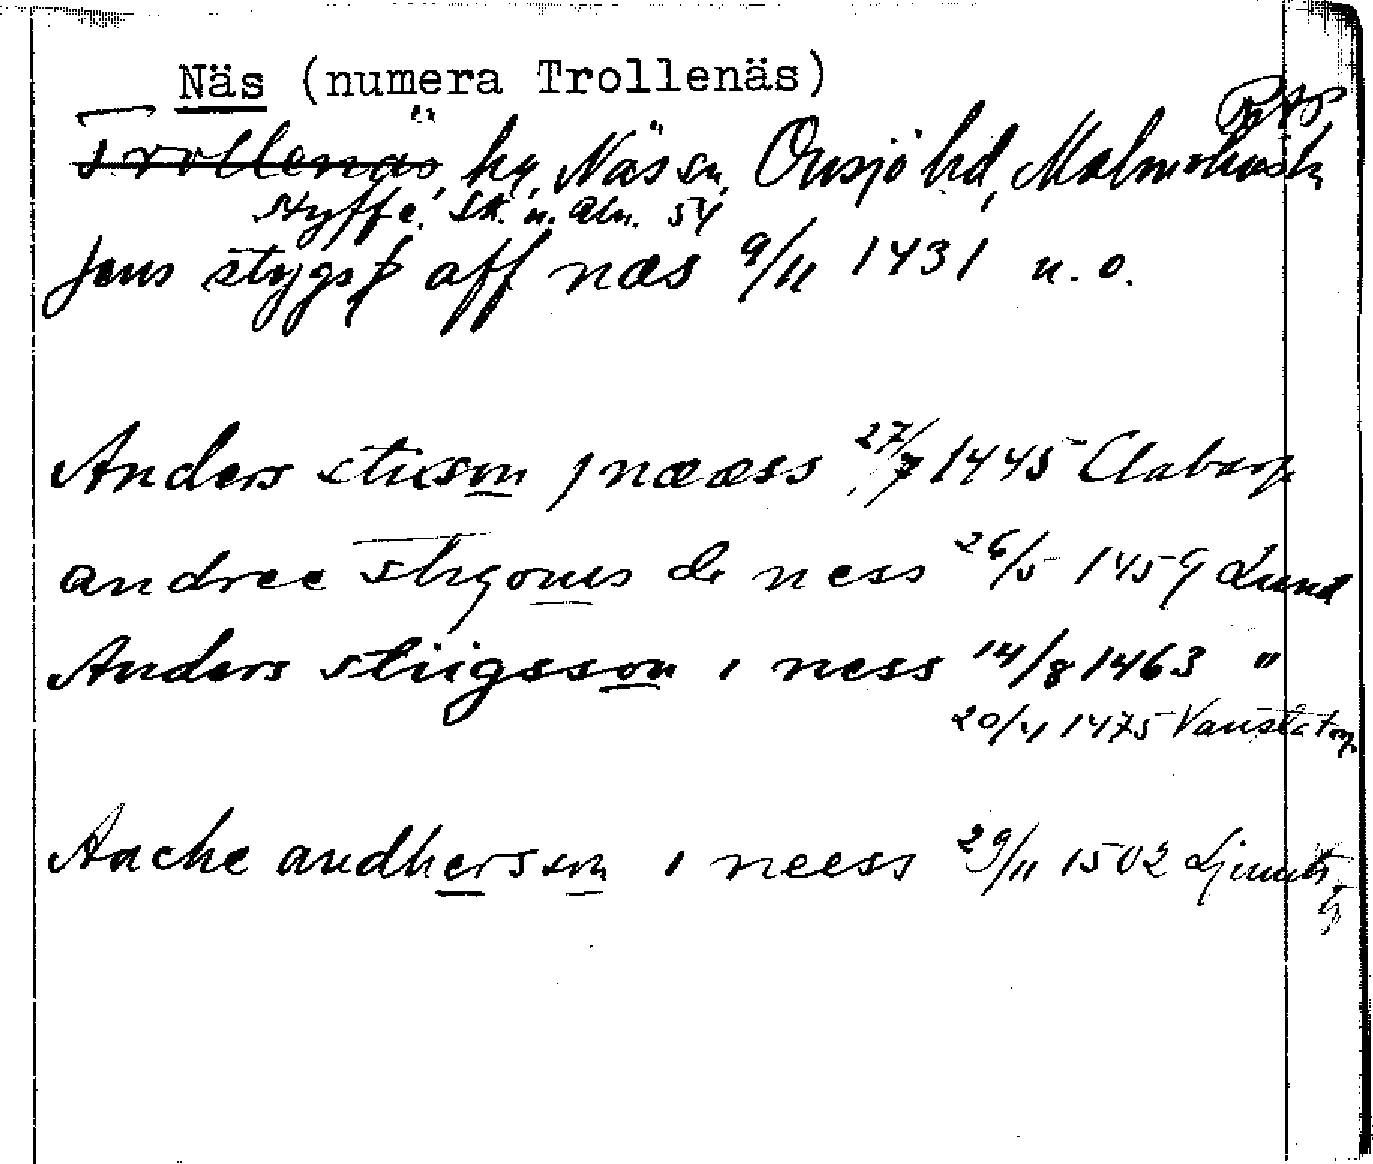 Näs (numera Trollenäs)
Trollenäs, hg, Näs sn, Onsjö hd, Malmöhus
Hyffe, Sk. u. Aln. 54
Jens stygs aff næs 9/11 1431 u.o.
Anders stison j næess 27/7 1445 Clabarp
andree stigonis de ness 26/5 1459 Lund
Anders stiigsson i ness 14/8 1463 "
20/4 1475 Vanstatorp
Aache andhersson i neess 29/11 1502 Ljunits